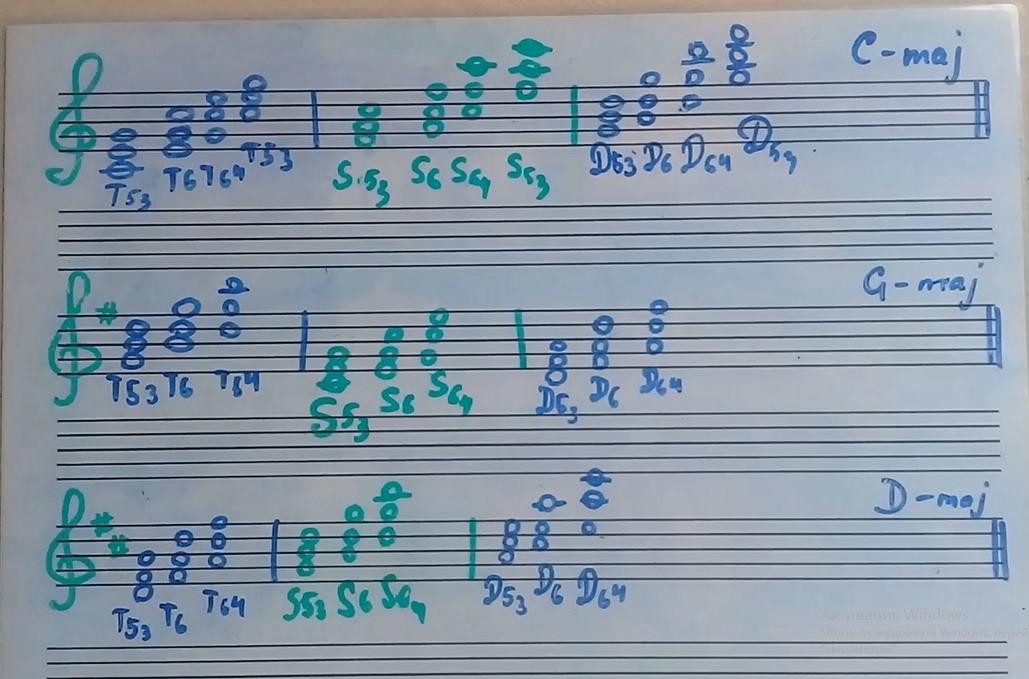 C-maj
T53 T6 T64 T53 S53 S6 S64 S53 D53 D6 D64 D53
G-maj
T53 T6 T64 S53 S6 S64 D53 D6 D64
D-maj
T53 T6 T64 S53 S6 S64 D53 D6 D64
Активация Windows
Чтобы активировать Windows, пере
"Параметры"